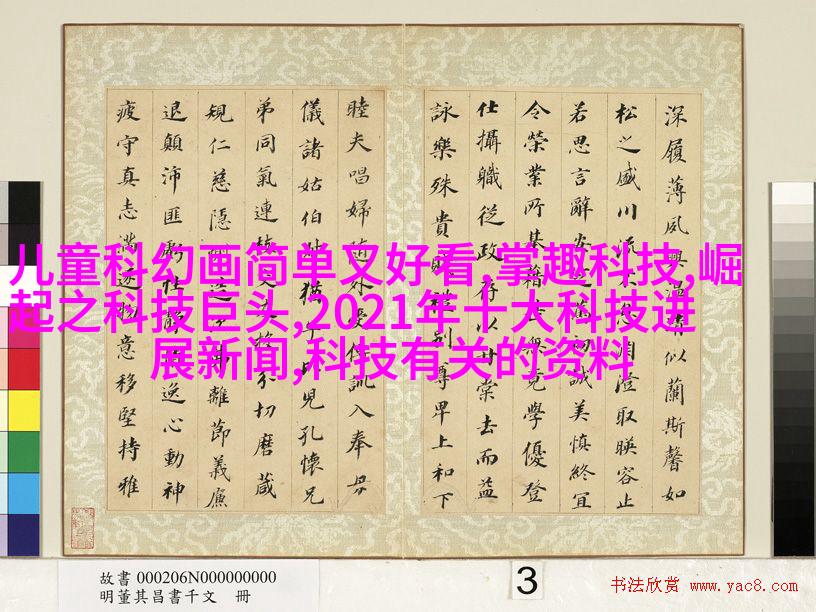 儿童科幻画简单又好看,掌趣科技,崛
起之科技巨头,2021年十大科技进
展新闻,科技有关的资料
深履薄夙興溫凊似蘭斯馨如
松之盛川流不息淵澄取暎容止
若思言辭安定篤初誠美慎終宜
令榮業所基籍甚無竟學優登
仕攝職從政存以甘棠去而益
詠樂殊貴賤禮別尊卑上和下
睦夫唱婦隨外受傅訓入奉母
儀諸姑伯叔猶子比兒孔懷兄
弟同氣連枝交友投分切磨箴
規仁慈隱惻造次弗離節義廉
退顛沛匪虧性靜情逸心動神
疲守真志滿逐物意移堅持雅
故書 000206N000000000
明董其昌書千文 冊
3
书法欣赏 www.yac8.com